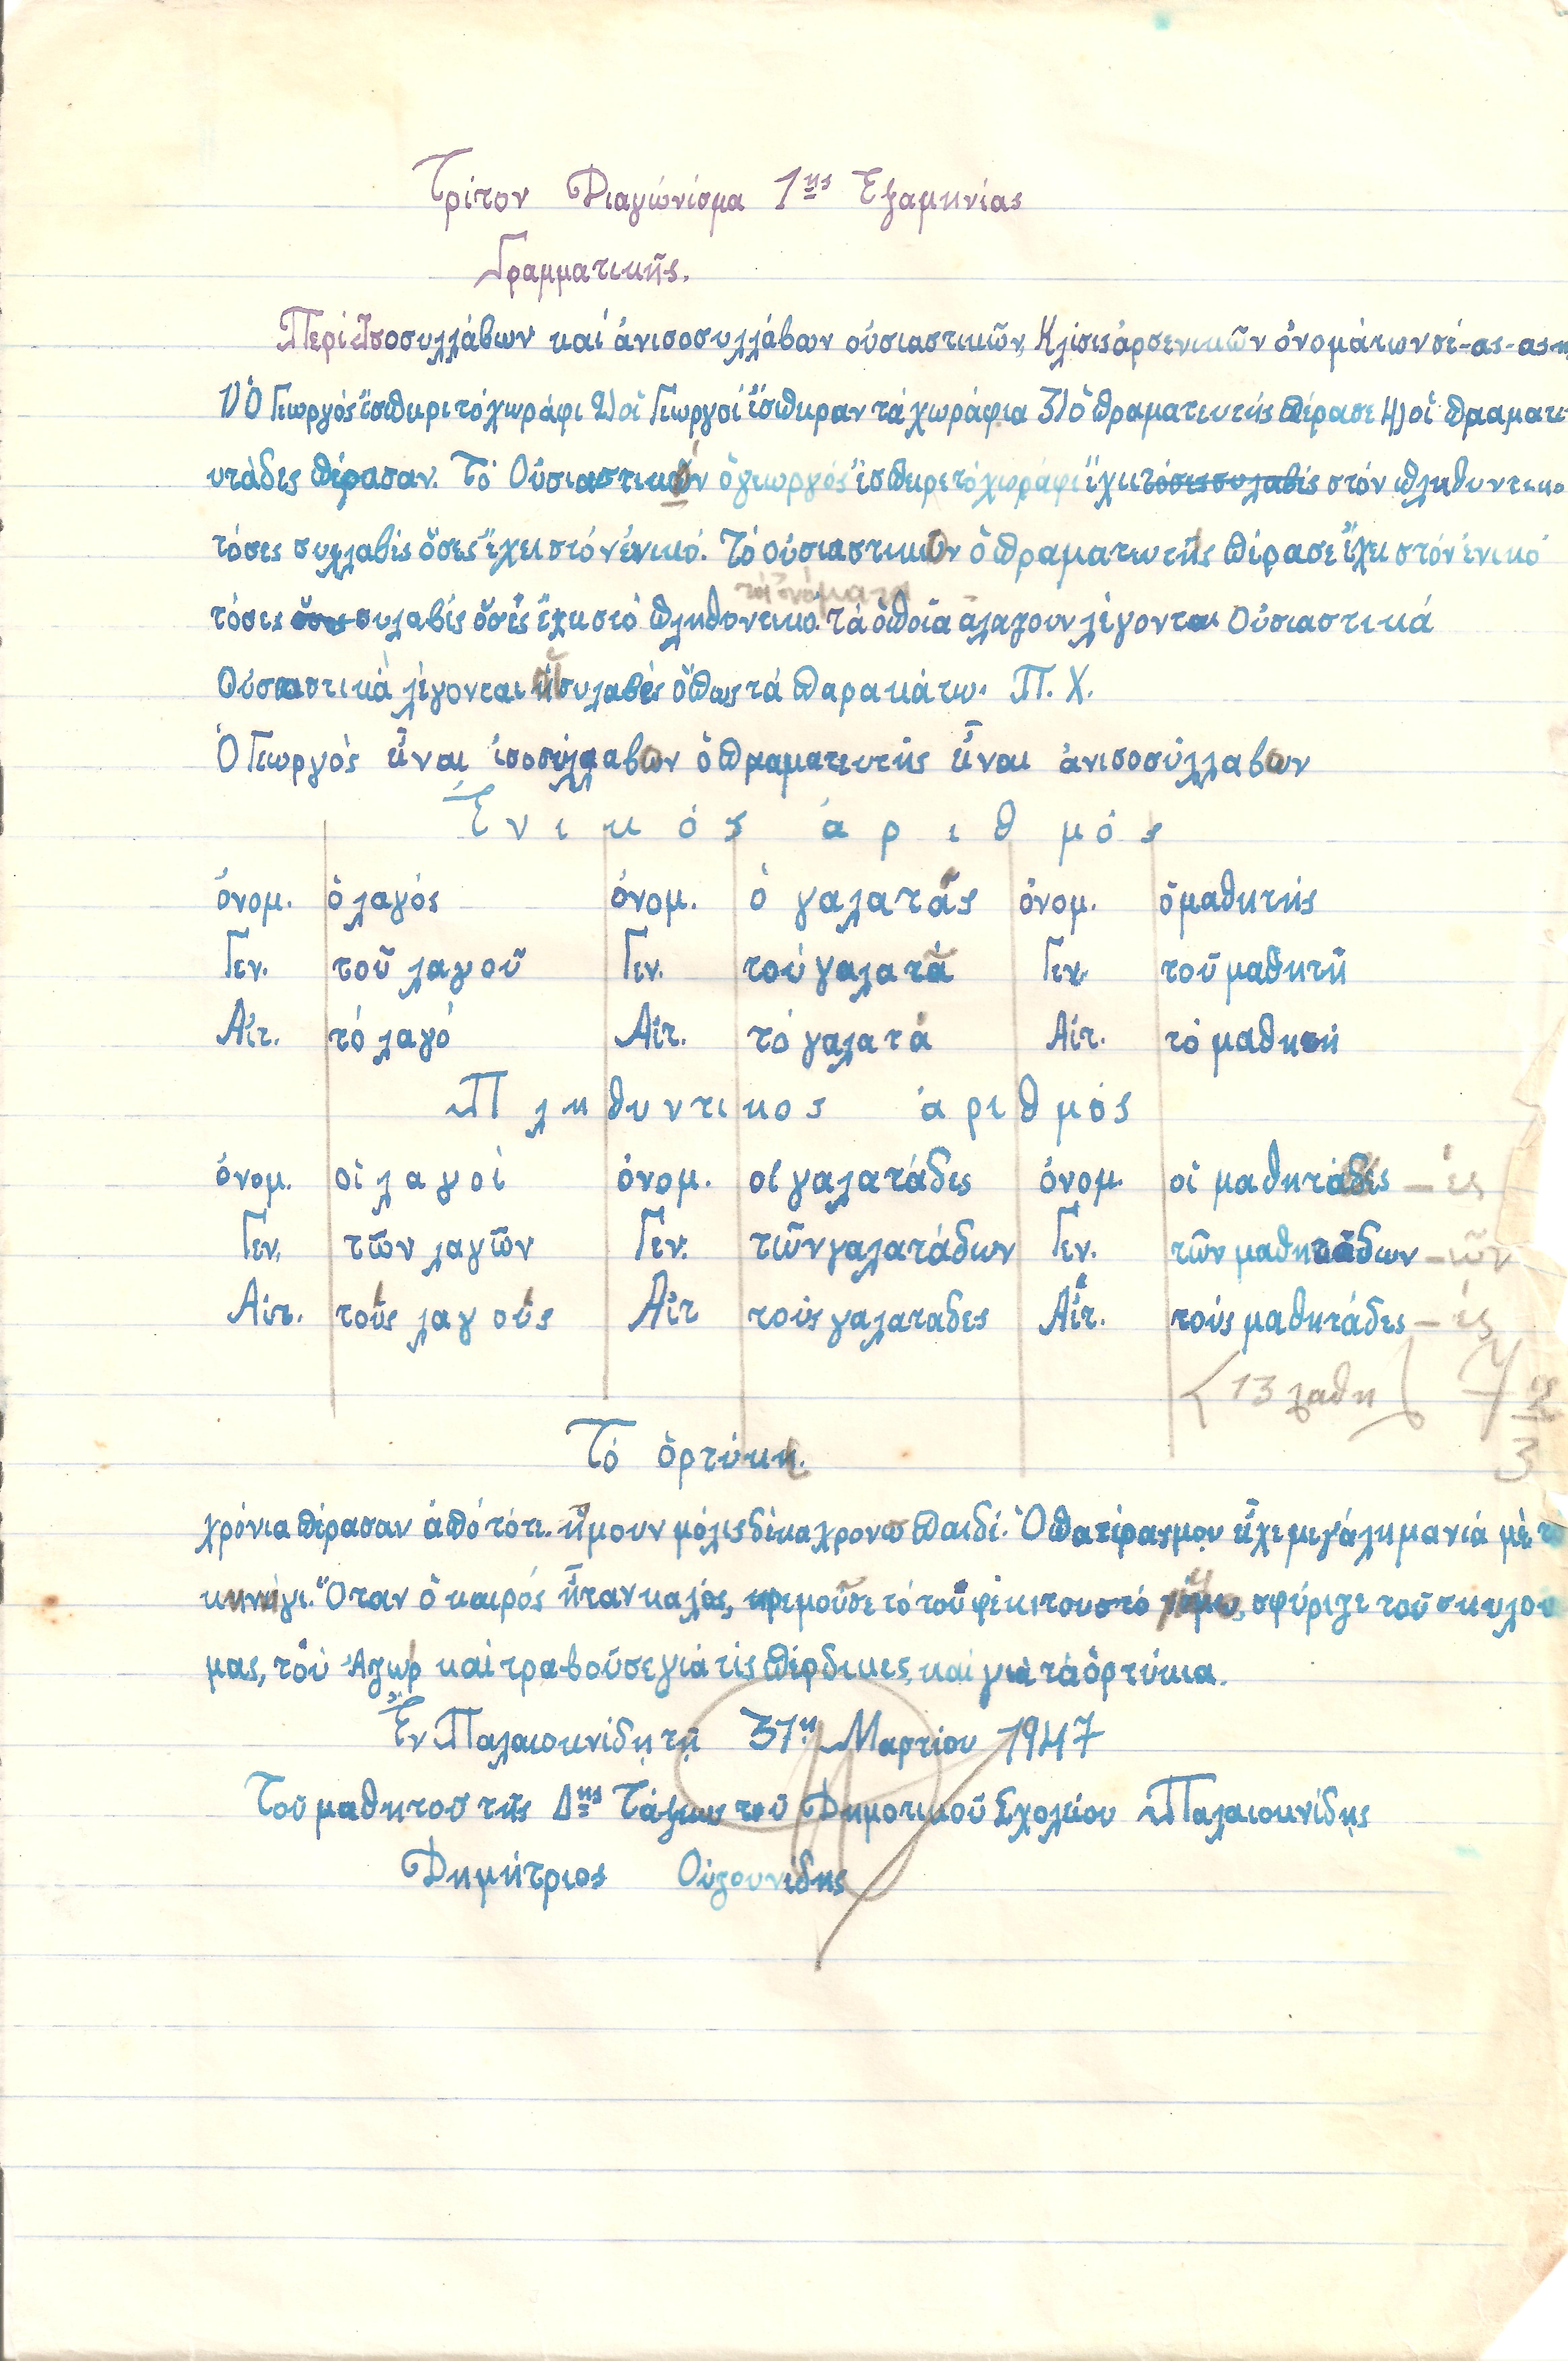 Τρίτον Διαγώνίσμα 1ης Εξαμηνίας
Γραμματικῆς.
Περί Ἰσοσυλλάβων καί ἀνισοσυλλάβων οὐσιαστικῶν, Κλίσις ἀρσενικῶν ὀνομάτων σέ -ας -ας -η
1) Ὁ Γεωργός ἔσπηρε τό χωράφι 2) οἱ Γεωργοί ἔσπηραν τά χωράφια 3) ὁ πραματευτής πέρασε 4) οἱ πραματε-
υτάδες πέρασαν. Τό Οὐσιαστικόν ὁ γεωργός ἔσπηρε τό χωράφι ἔχει τόσες συλαβές στόν πληθυντικο
τόσες συλλαβές ὅσες ἔχει στόν ἑνικό. Τό οὐσιαστικον ὁ πραματευτής πέρασε ἔχει στόν ἑνικό
τά ὀνόματα
τόσες ὅσες συλαβές ὅσες ἔχει στό πληθυντικό. τά ὁποῖα αλαζουν λέγονται Οὐσιαστικά
Οὐσιαστικά λέγονται ἡ συλαβές ὅπως τά παρακάτω. Π. Χ.
Ὁ Γεωργός εἶναι ἰσοσύλλαβον ὁ πραματευτής εἶναι ἀνισοσύλλαβον
Ἑνικός ἀριθμός
ὀνομ. ὁ λαγός ὀνομ. ὁ γαλατᾶς ὀνομ. ὁ μαθητής
Γεν. τοῦ λαγοῦ Γεν. τού γαλατᾶ Γεν. τοῦ μαθητῆ
Αἰτ. τό λαγό Αἰτ. τό γαλατά Αἰτ. τό μαθητή
Πληθυντικος ἀριθμός
ὀνομ. οἱ λαγοί ὀνομ. οἱ γαλατάδες ὀνομ. οἱ μαθητάδες - ές
Γεν. τῶν λαγῶν Γεν. τῶν γαλατάδων Γεν. τῶν μαθητάδων - ῶν
Αἰτ. τούς λαγούς Αἰτ τούς γαλαταδες Αἰτ. τούς μαθητάδες - ές
13 λαθη 7 2/3
Τό ὀρτύκι.
χρόνια πέρασαν ἀπό τότε. ἤμουν μόλις δέκα χρονω παιδί. Ὁ πατέρας μου εἶχε μεγάλη μανιά μέ το
κυνήγι. Ὅταν ὁ καιρός ἦταν καλός, κρεμοῦσε τό τουφέκι του στό ὦμο, σφύριζε τοῦ σκυλου
μας, τοῦ Ἀζωρ καί τραβοῦσε γιά τίς πέρδικες, καί γιά τά ὀρτύκια.
Ἐν Παλαιοκνίδῃ τῇ 31ῃ Μαρτίου 1947
Τοῦ μαθητοῦ τῆς Δης Τάξεως τοῦ Δημοτικοῦ Σχολείου Παλαιοκνίδης
Δημήτριος Οὐζουνίδης